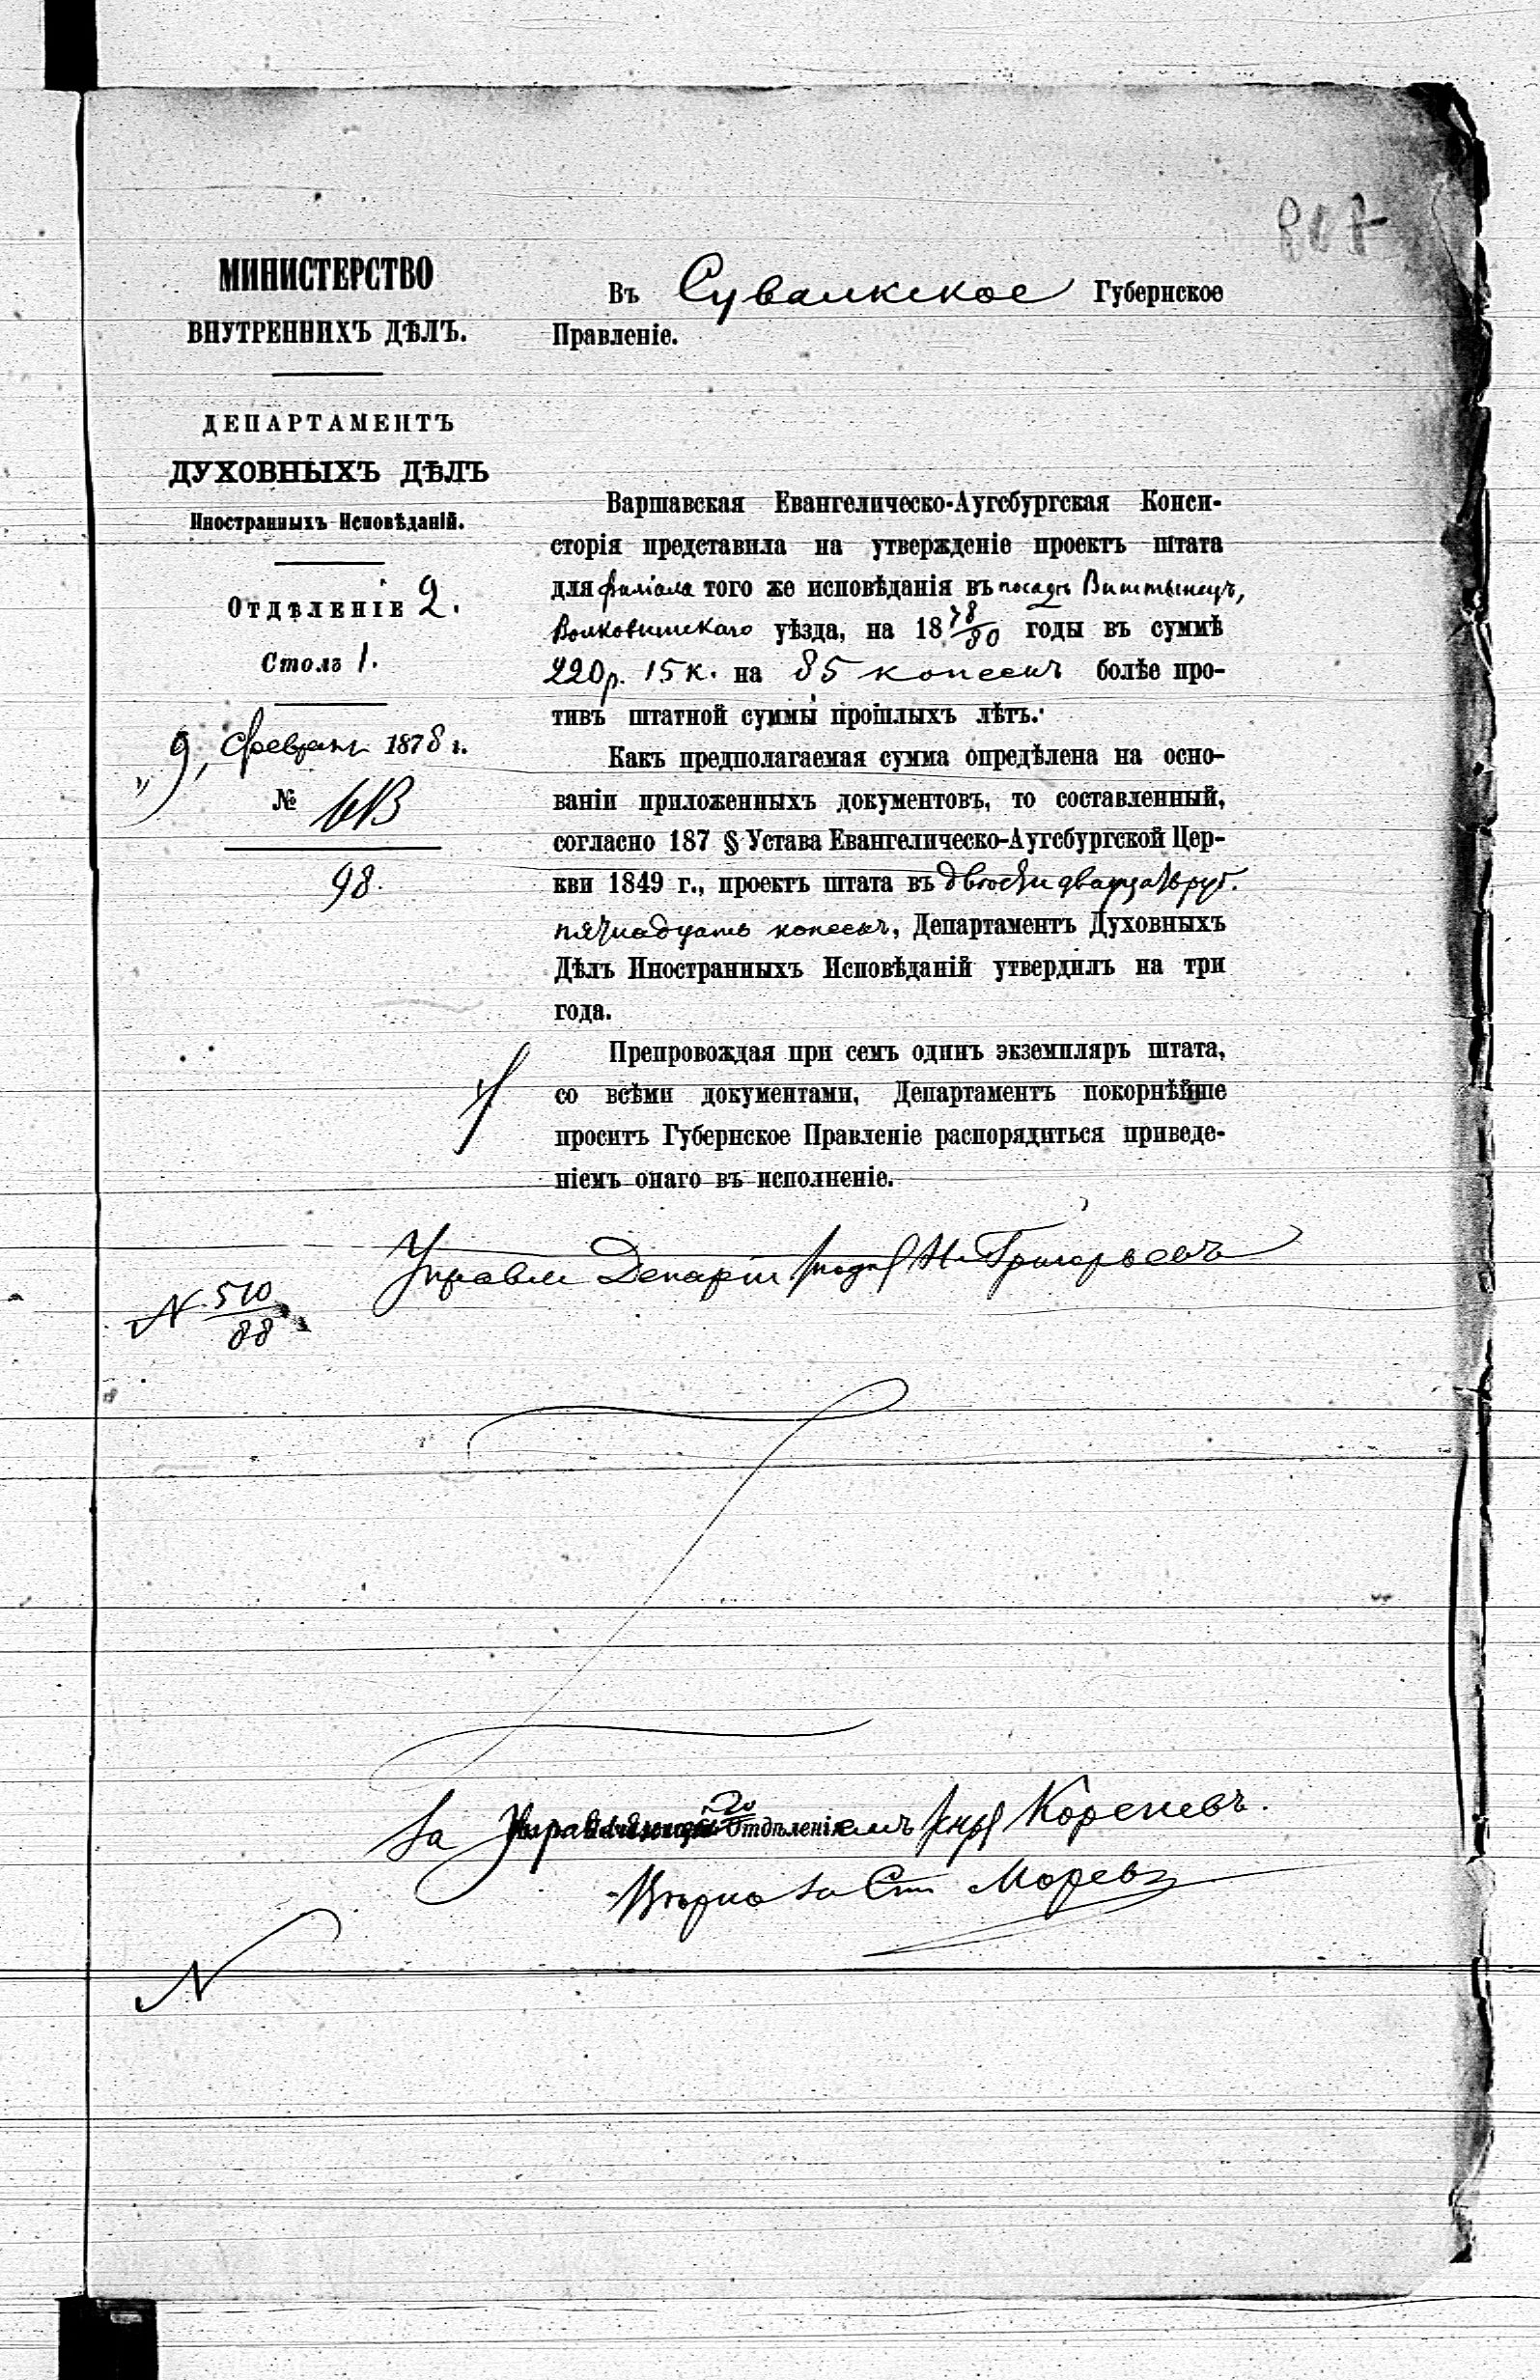 МИНИСТЕРСТВО
ВНУТРЕННИХЪ ДѢЛЪ.
ДЕПАРТАМЕНТЪ
ДУХОВНЫХЪ ДѢЛЪ
Иностранныхъ Исповѣданій.
Отдѣленіе 2.
Столъ 1.
„9„ Февраля 1878 г.
№
98.
Въ Сувалкское Губернское
Правленіе.
Варшавская Евангелическо-Аугсбургская Конси-
сторія представила на утвержденіе проектъ штата
для филіала того же исповѣданія въ посадѣ Виштынецъ,
Волковишскаго уѣзда, на 18 78/80 годы въ суммѣ
220 р. 15 к. на 85 копеекъ болѣе про-
тивъ штатной суммы прошлыхъ лѣтъ.
Какъ предполагаемая сумма опредѣлена на осно-
ваніи приложенныхъ документовъ, то составленный,
согласно 187 § Устава Евангелическо-Аугсбургской Цер-
кви 1849 г., проектъ штата въ двѣсти двадцать руб.
пятнадцать копеекъ, Департаментъ Духовныхъ
Дѣлъ Иностранныхъ Исповѣданій утвердилъ на три
года.
Препровождая при семъ одинъ экземпляръ штата,
со всѣми документами, Департаментъ покорнѣйше
проситъ Губернское Правленіе распорядиться приведе-
ніемъ онаго въ исполненіе.
Управл Департ подп Н. Григорьевъ
N 510/88
За Управляющаго Отдѣленіемъ Кореневъ.
Вѣрно за Ст Моревъ
N